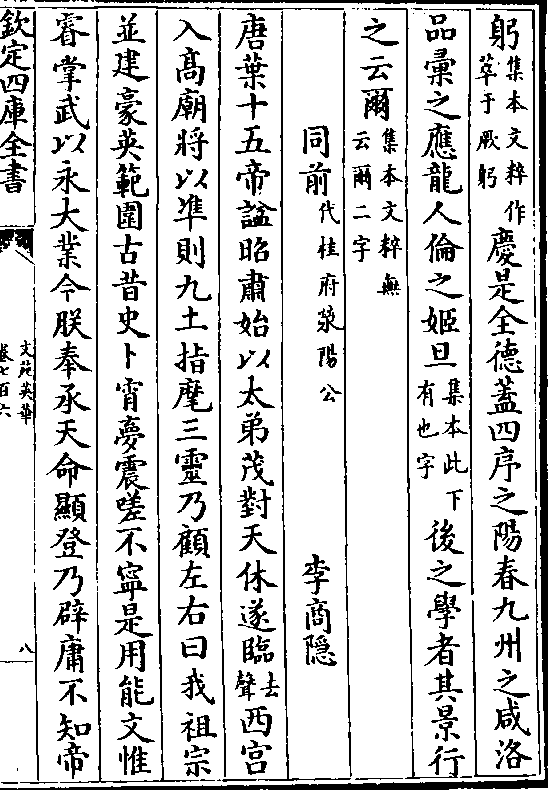 躬集本文粹作萃于厥躬慶是全德蓋四序之陽春九州之咸洛
品彚之應龍人倫之姬旦集本此下有也字後之學者其景行
之云爾集本文粹無云爾二字
同前代桂府滎陽公 李商隠
唐葉十五帝諡昭肅始以太弟茂對天休遂臨去聲西宫
入髙廟將以凖則九土指麾三靈乃顧左右曰我祖宗
並建豪英範圍古昔史卜宵夢震嗟不寜是用能文惟
睿掌武以永大業今朕奉承天命顯登乃辟庸不知帝
欽定四庫全書
文苑英華
卷七百六
八